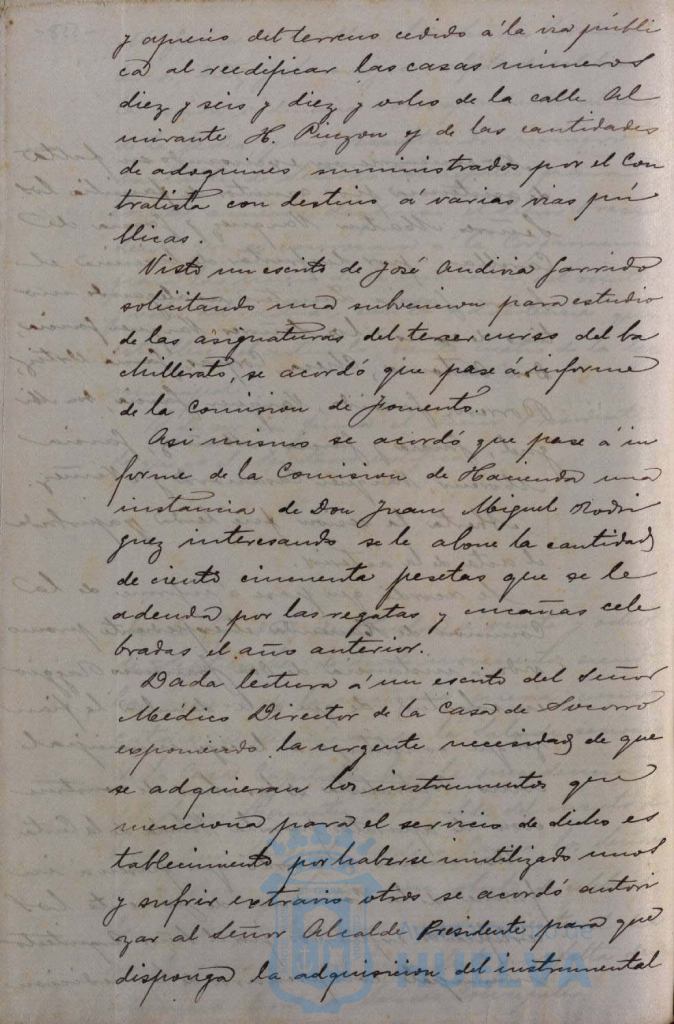 y aprecio del terreno cedido á la via públi
ca al reedificar las casas números
diez y seis y diez y ocho de la calle Al
mirante H. Pinzon y de las cantidades
de adoquines suministrados por el Con
tratista con destino á varias vias pú
blicas.
Visto un escrito de José Andivia Garrido
solicitando una subvencion para estudio
de las asignaturas del tercer curso del ba
chillerato, se acordó que pase á informe
de la Comision de Fomento.
Asi mismo se acordó que pase á in
forme de la Comision de Hacienda una
instancia de Don Juan Miguel Rodri
guez interesando se le abone la cantidad
de ciento cincuenta pesetas que se le
adeuda por las regatas y cucañas cele
bradas el año anterior.
Dada lectura á un escrito del Señor
Médico Director de la Casa de Socorro
exponiendo la urgente necesidad de que
se adquieran los instrumentos que
menciona para el servicio de dicho es
tablecimiento por haberse inutilizado unos
y sufrir extravio otros se acordó autori
zar al Señor Alcalde Presidente para que
disponga la adquisicion del instrumental
HUELVA